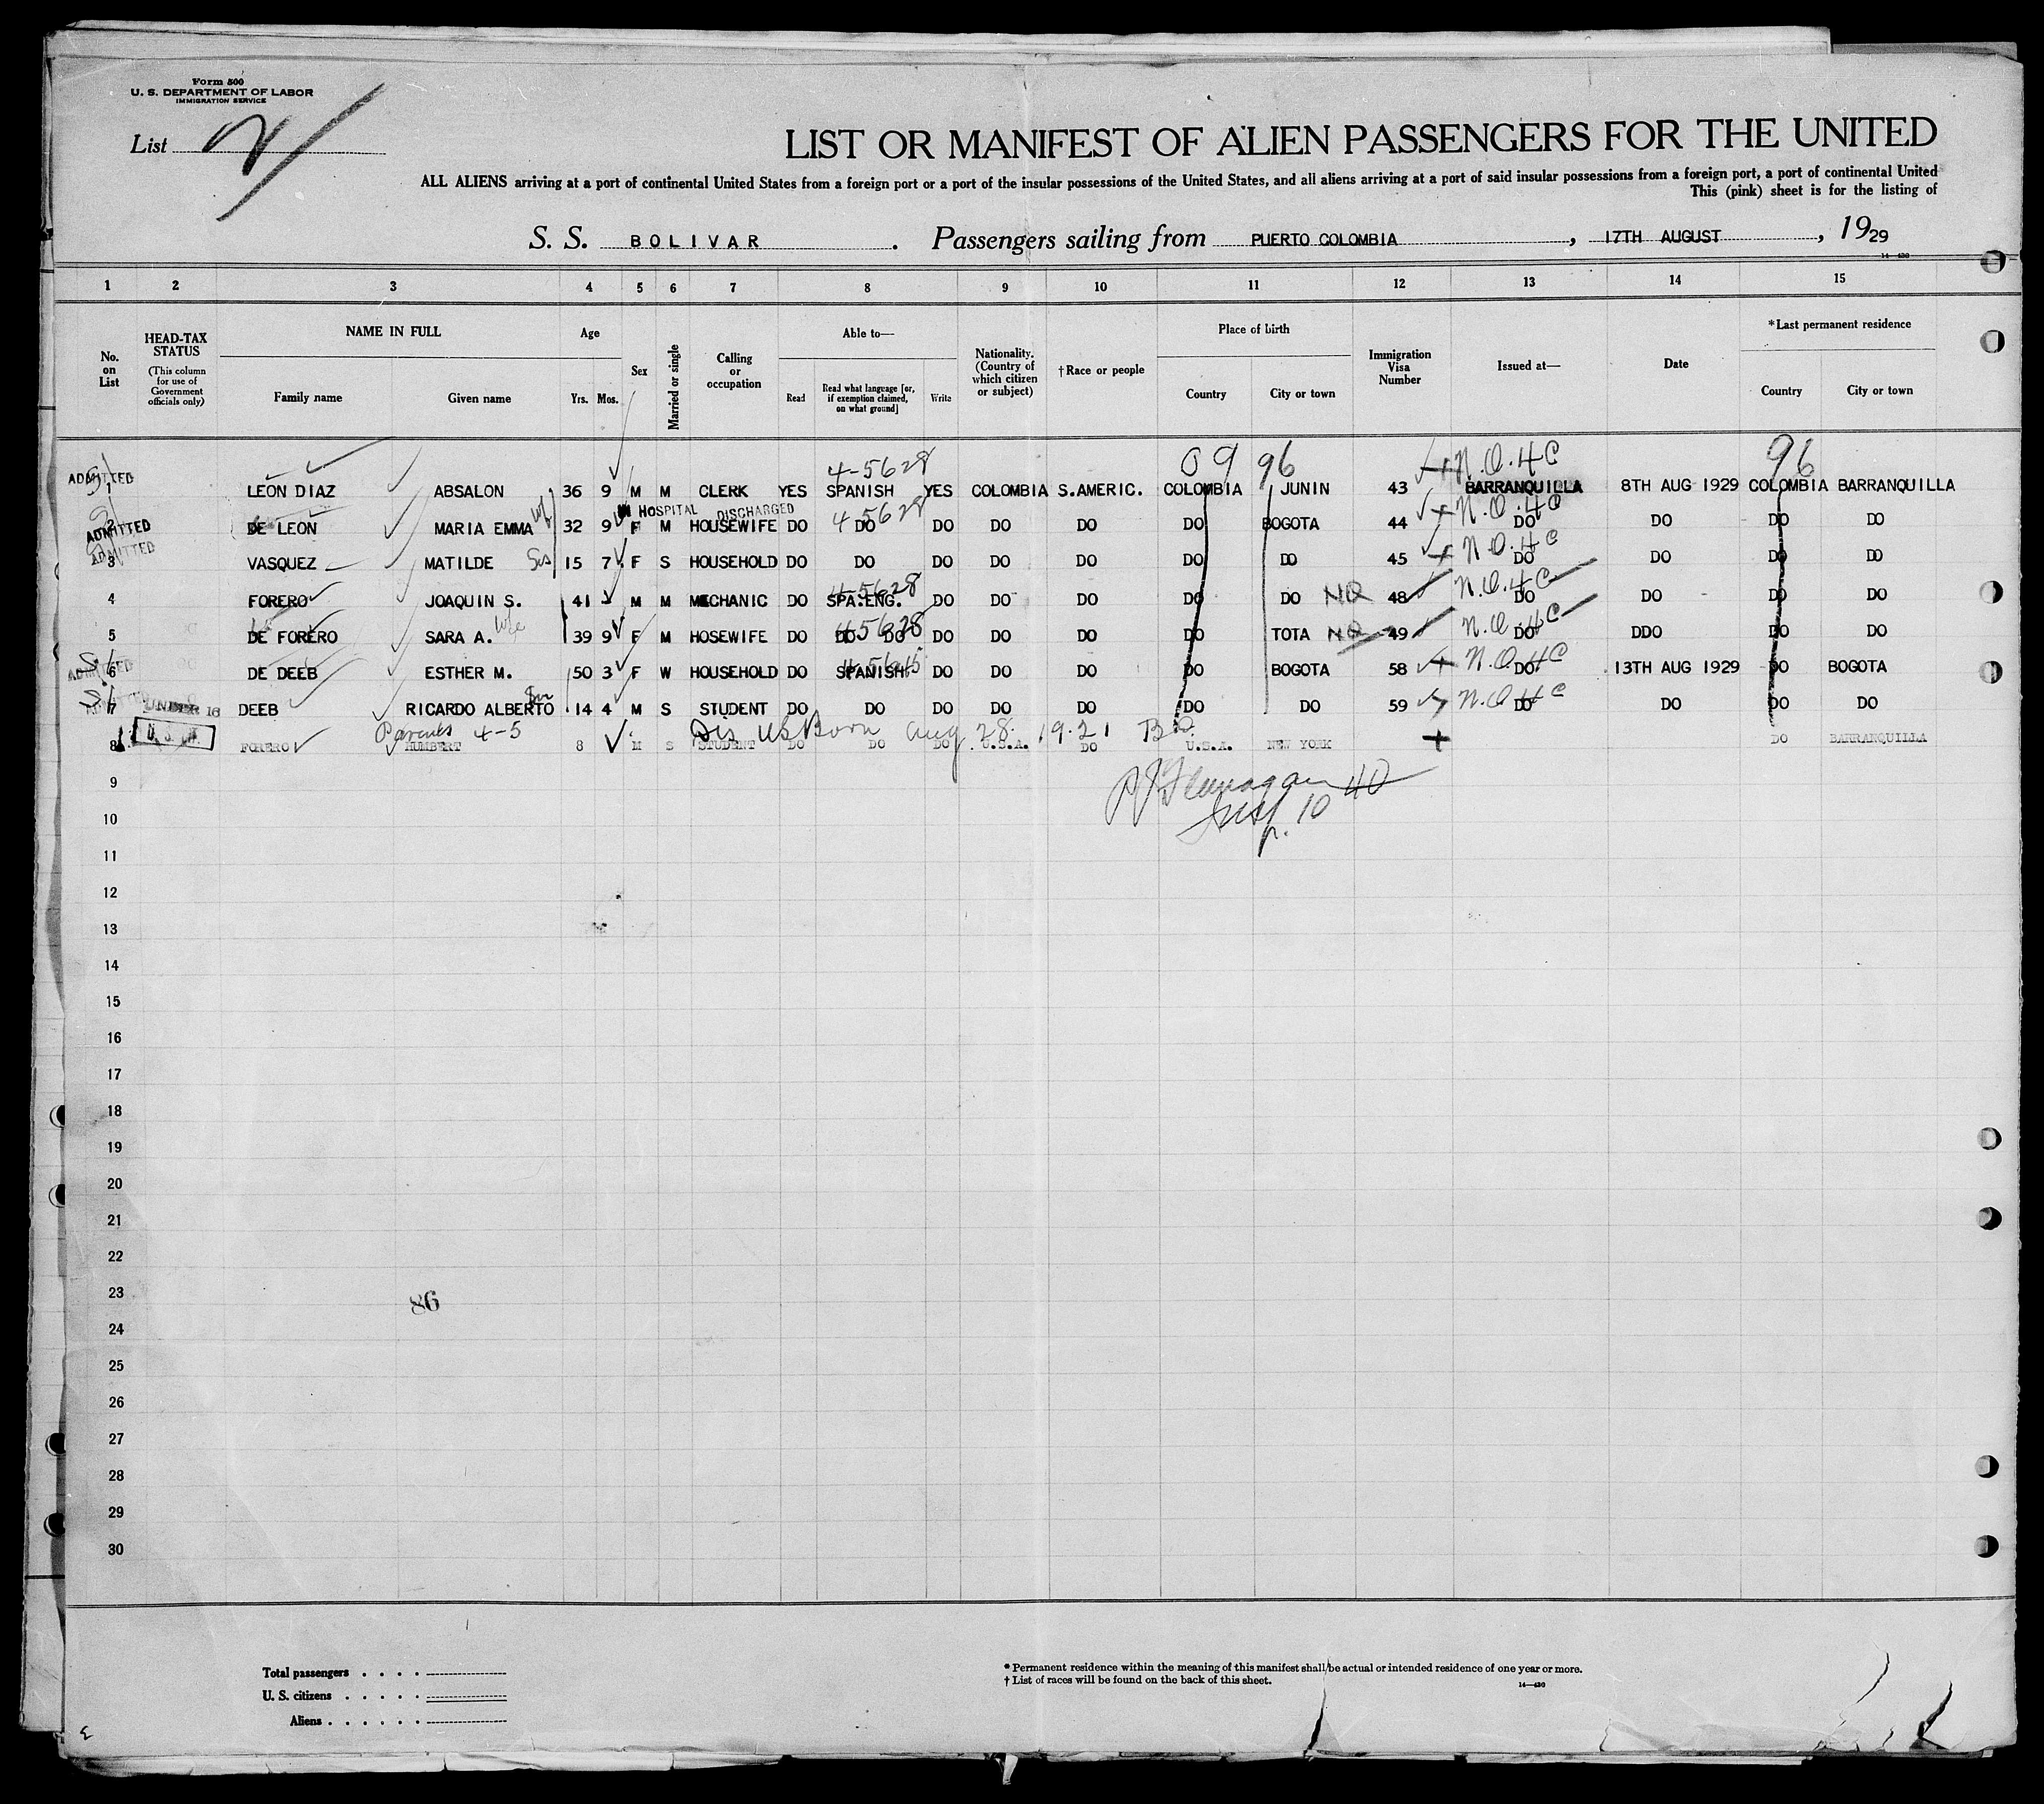 Form 500
U. S. DEPARTMENT OF LABOR
IMMIGRATION SERVICE
List
LIST OR MANIFEST OF ALIEN PASSENGERS FOR THE UNITED
ALL ALIENS arriving at a port of continental United States from a foreign port or a port of the insular possessions of the United States, and all aliens arriving at a port of said insular possessions from a foreign port, a port of continental United
This (pink) sheet is for the listing of
S. S. BOLIVAR . Passengers sailing from PUERTO COLOMBIA , 17TH AUGUST , 1929
14—430
1 2 3 4 5 6 7 8 9 10 11 12 13 14 15
No. on List
HEAD-TAX STATUS (This column for use of Government officials only)
NAME IN FULL
Family name Given name
Age
Yrs. Mos.
Sex
Married or single
Calling or occupation
Able to—
Read Read what language [or, if exemption claimed, on what ground] Write
Nationality. (Country of which citizen or subject)
†Race or people
Place of birth
Country City or town
Immigration Visa Number
Issued at—
Date
*Last permanent residence
Country City or town
4-5628 09 96 N.O.4C 96
ADMITTED
1 LEON DIAZ ABSALON 36 9 M M CLERK YES SPANISH YES COLOMBIA S.AMERIC. COLOMBIA JUNIN 43 BARRANQUILLA 8TH AUG 1929 COLOMBIA BARRANQUILLA
IN HOSPITAL DISCHARGED 4-5628 N.O.4C
ADMITTED
2 DE LEON MARIA EMMA wf 32 9 F M HOUSEWIFE DO DO DO DO DO DO BOGOTA 44 DO DO DO DO
ADMITTED N.O.4C
3 VASQUEZ MATILDE Sis 15 7 F S HOUSEHOLD DO DO DO DO DO DO DO 45 DO DO DO DO
4-5628 N.O.4C
4 FORERO JOAQUIN S. 41 - M M MECHANIC DO SPA.ENG. DO DO DO DO DO NQ 48 DO DO DO DO
wfe 4-5628 N.O.4C
5 DE FORERO SARA A. 39 9 F M HOSEWIFE DO DO DO DO DO DO DO TOTA NQ 49 DO DDO DO DO
ADMITTED N.O.4C
6 DE DEEB ESTHER M. 50 3 F W HOUSEHOLD DO SPANISH DO DO DO DO BOGOTA 58 DO 13TH AUG 1929 DO BOGOTA
UNDER 16 Son N.O.4C
7 DEEB RICARDO ALBERTO 14 4 M S STUDENT DO DO DO DO DO DO DO 59 DO DO DO DO
Parents 4-5 Dis US Born Aug 28. 1921
8 FORERO HUMBERT 8 M S STUDENT DO DO DO U.S.A. DO U.S.A. NEW YORK DO BARRANQUILLA
9
10
11
12
13
14
15
16
17
18
19
20
21
22
23
86
24
25
26
27
28
29
30
Total passengers . . . .
U. S. citizens . . . . .
Aliens . . . . . .
* Permanent residence within the meaning of this manifest shall be actual or intended residence of one year or more.
† List of races will be found on the back of this sheet.
14—430